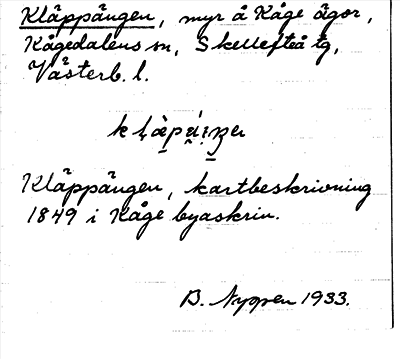 Kläppängen, myr å Kåge ägor,
Kågedalens sn, Skellefteå tg,
Västerb. l.
Kläppängen, kartbeskrivning
1849 i Kåge byaskrin.
B. Nygren 1933.